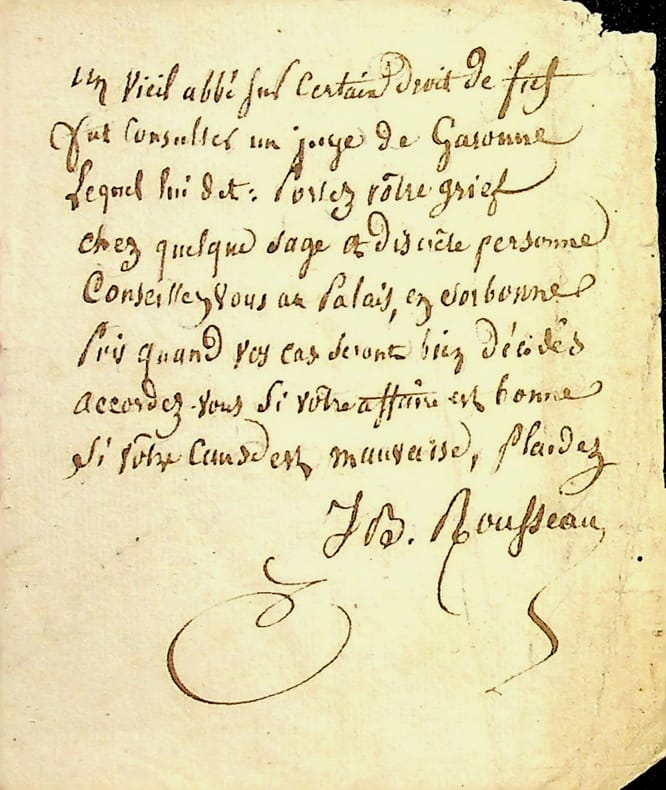 un vieil abbé sur certain droit de fief
fut consulter un juge de Garonne
lequel lui dit: Portez vôtre grief
chez quelque sage et discrète personne
Conseillez vous au Palais, en Sorbonne
Puis quand vos cas seront bien décidés
accordez-vous si vôtre affaire est bonne
si vôtre cause est mauvaise, plaidez
JB. Rousseau